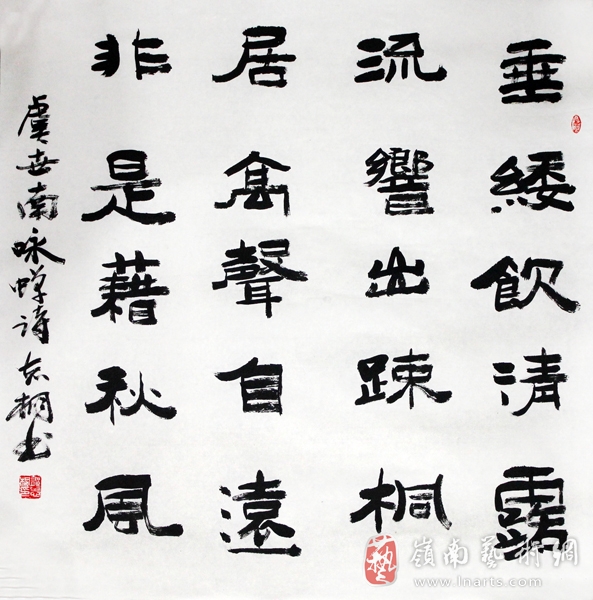 垂緌飲清露
流響出疎桐
居高聲自遠
非是藉秋風
虞世南咏蟬诗 志桐书
嶺南藝術網
www.lnarts.com